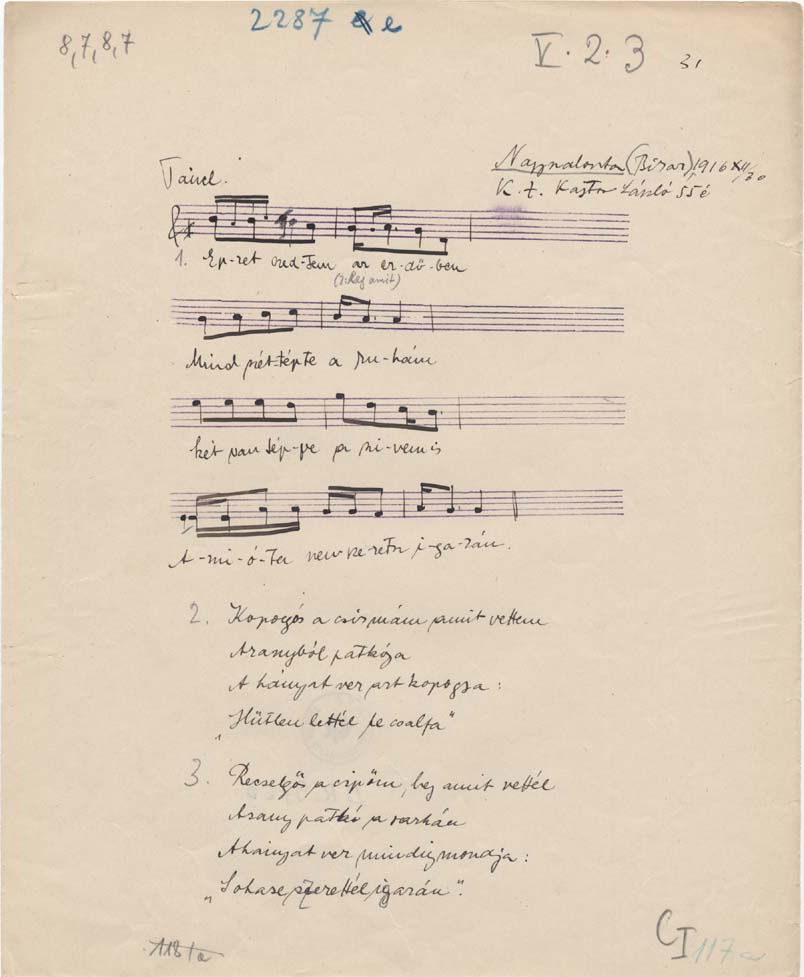 8,7,8,7
2287 e
V. 2. 3
31
Nagyszalonta (Bihar) 1916 XII/30
K. Z. László 55 é
Táncl.
1. Ep-ret szed-tem az er-dő-ben
(: Kej amit)
Mind szét-tépte a ru-hám
két van tép-ve a szi-vem is
A-mi-ó-ta nem sze-retsz i-ga-zán.
2. Kopogós a csizmám amit vettem
Aranyból patkója
A hányat ver azt kopogja:
„Hűtlen lettél te csalfa"
3. Recsegős a cipőm, hej amit vettél
Arany patkó a sarkán
Ahányat ver mindig mondja:
„Sohase szerettél igazán".
118/a
CI 117a